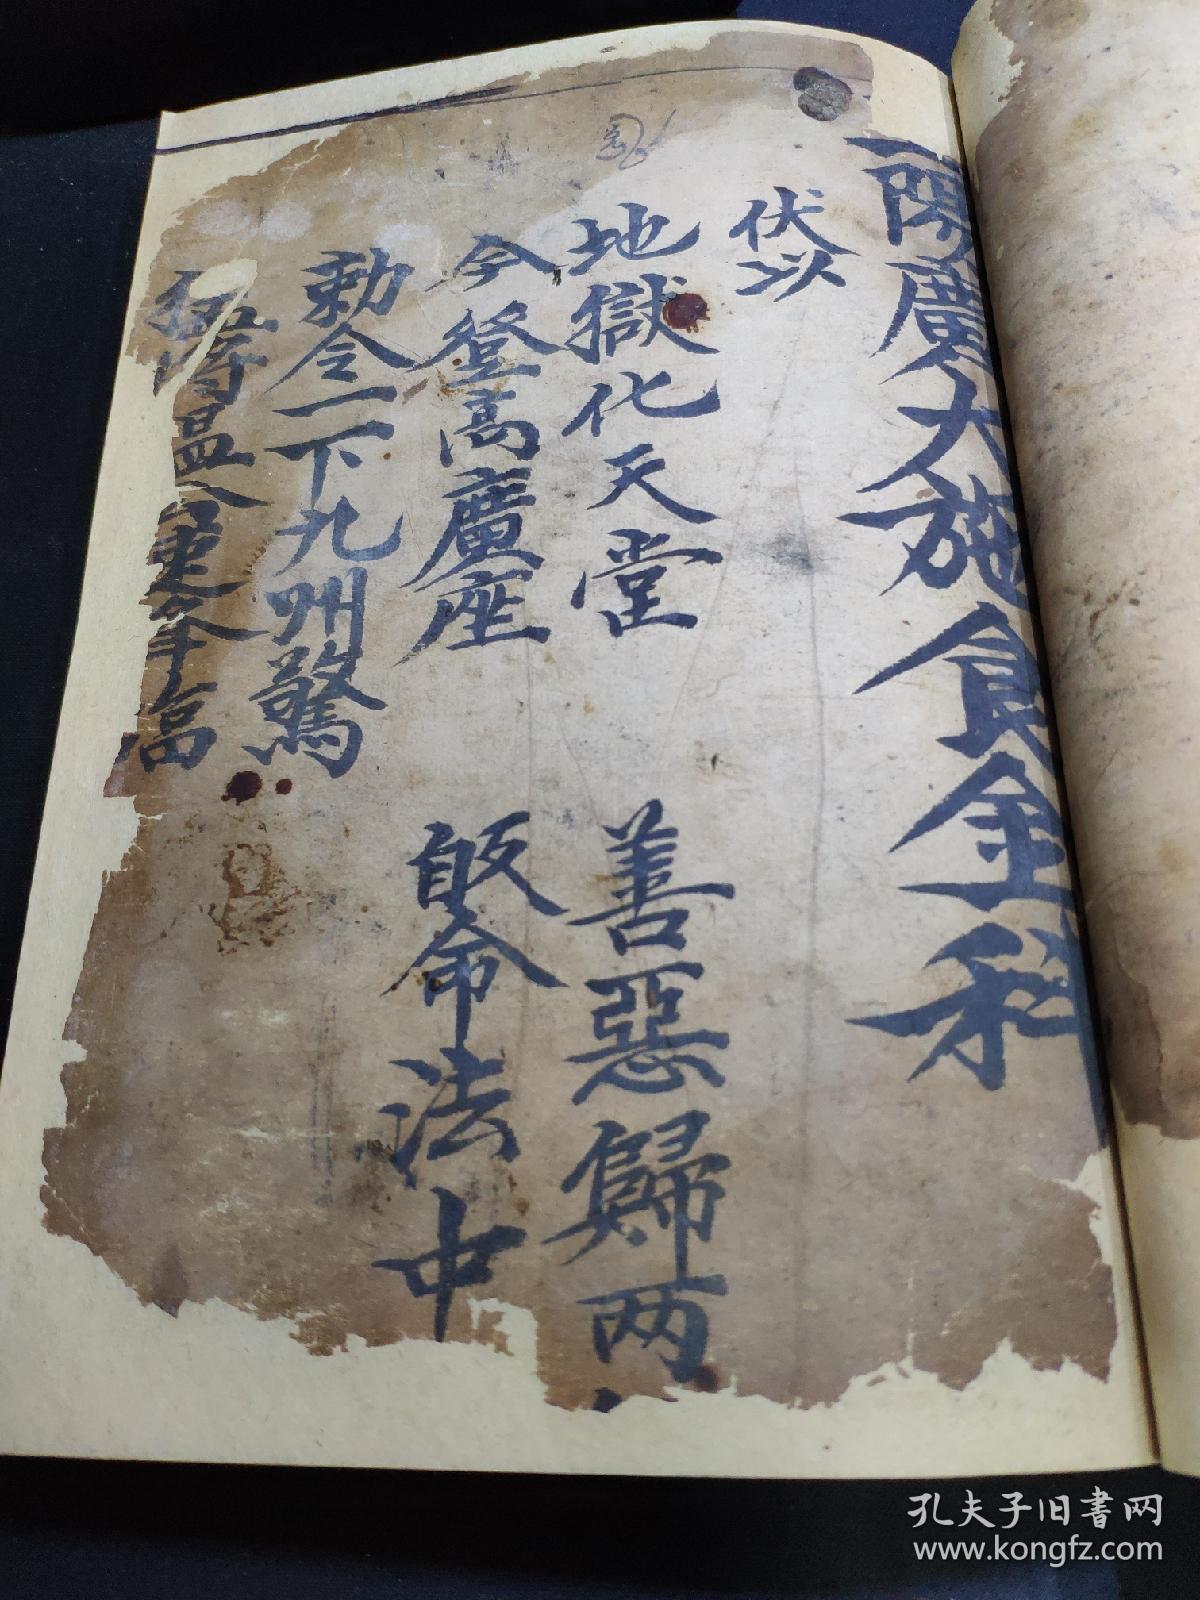 陽廣大施食金科
伏以
地獄化天堂 善惡歸两
今登高廣座 皈命法中
勅令一下九州驚
孔夫子旧书网
www.kongfz.com